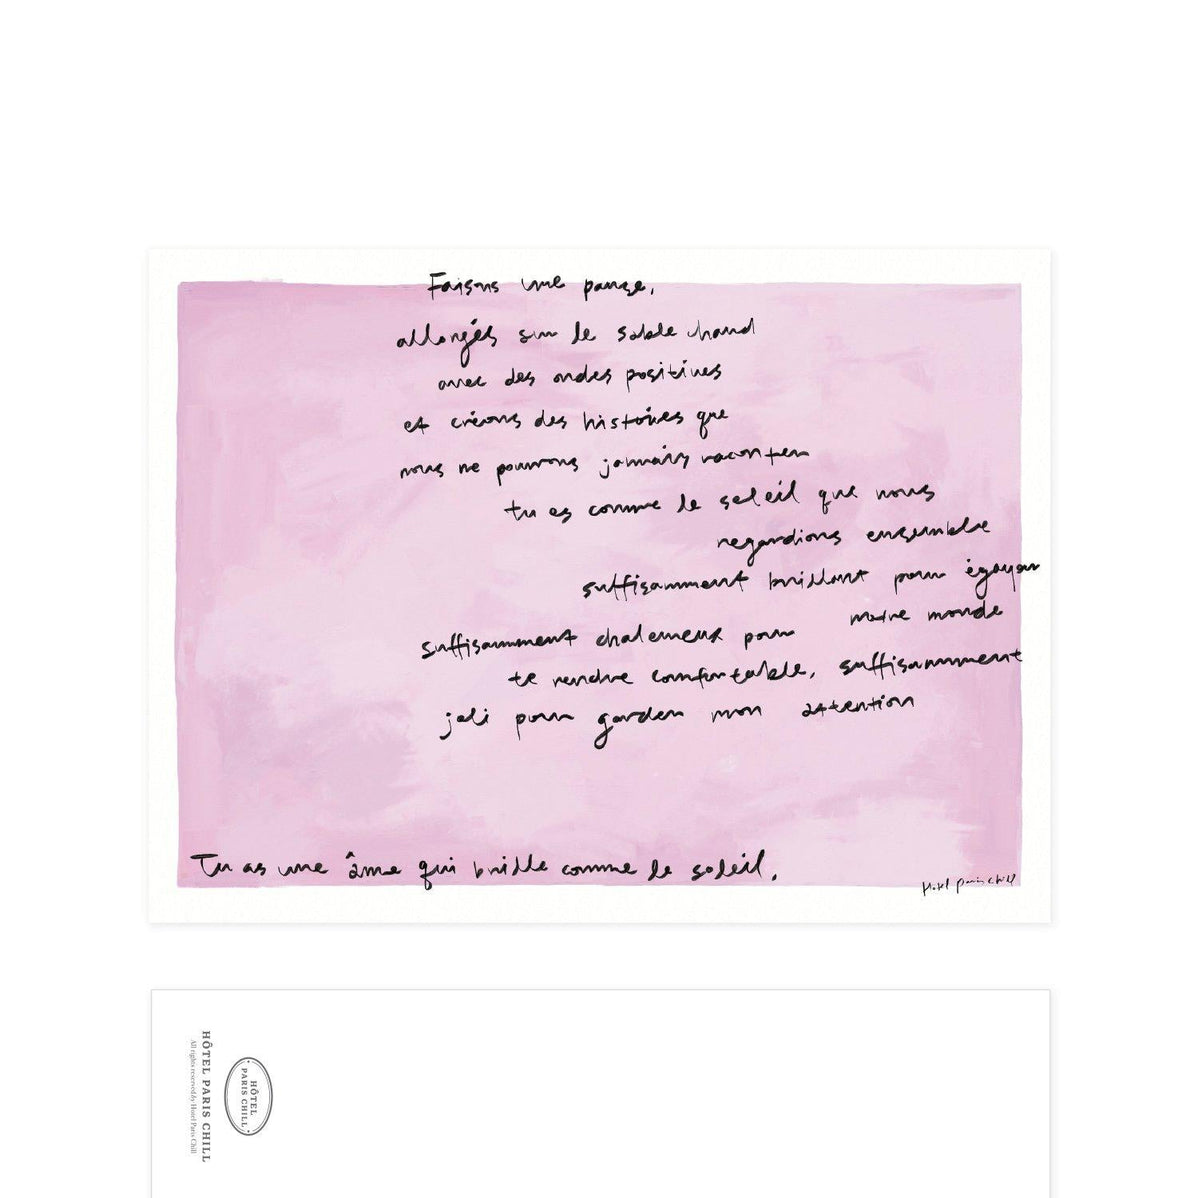 Faisons une pause,
allongés sur le sable chaud
avec des ondes positives
et créons des histoires que
nous ne pourrons jamais raconter
tu es comme le soleil que nous
regardions ensemble
suffisamment brillant pour égayer
notre monde
suffisamment chaleureux pour
te rendre comfortable, suffisamment
joli pour garder mon attention
Tu as une âme qui brille comme le soleil.
Hotel Paris Chill
HÔTEL PARIS CHILL
All rights reserved by Hotel Paris Chill
HÔTEL
PARIS CHILL